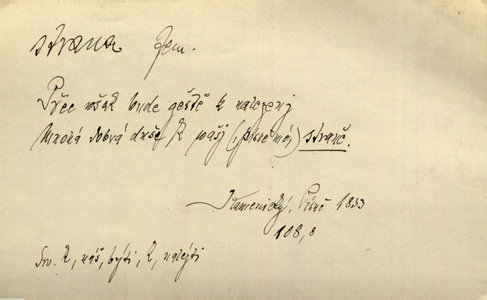 strana fem.
Přec však bude geště k nalezenj
Mnohá dobrá duše k našj (, půl má,) straně.
Kamenický, Písně 1833
108, 8
Srv. k, náš, býti, k, nalézti